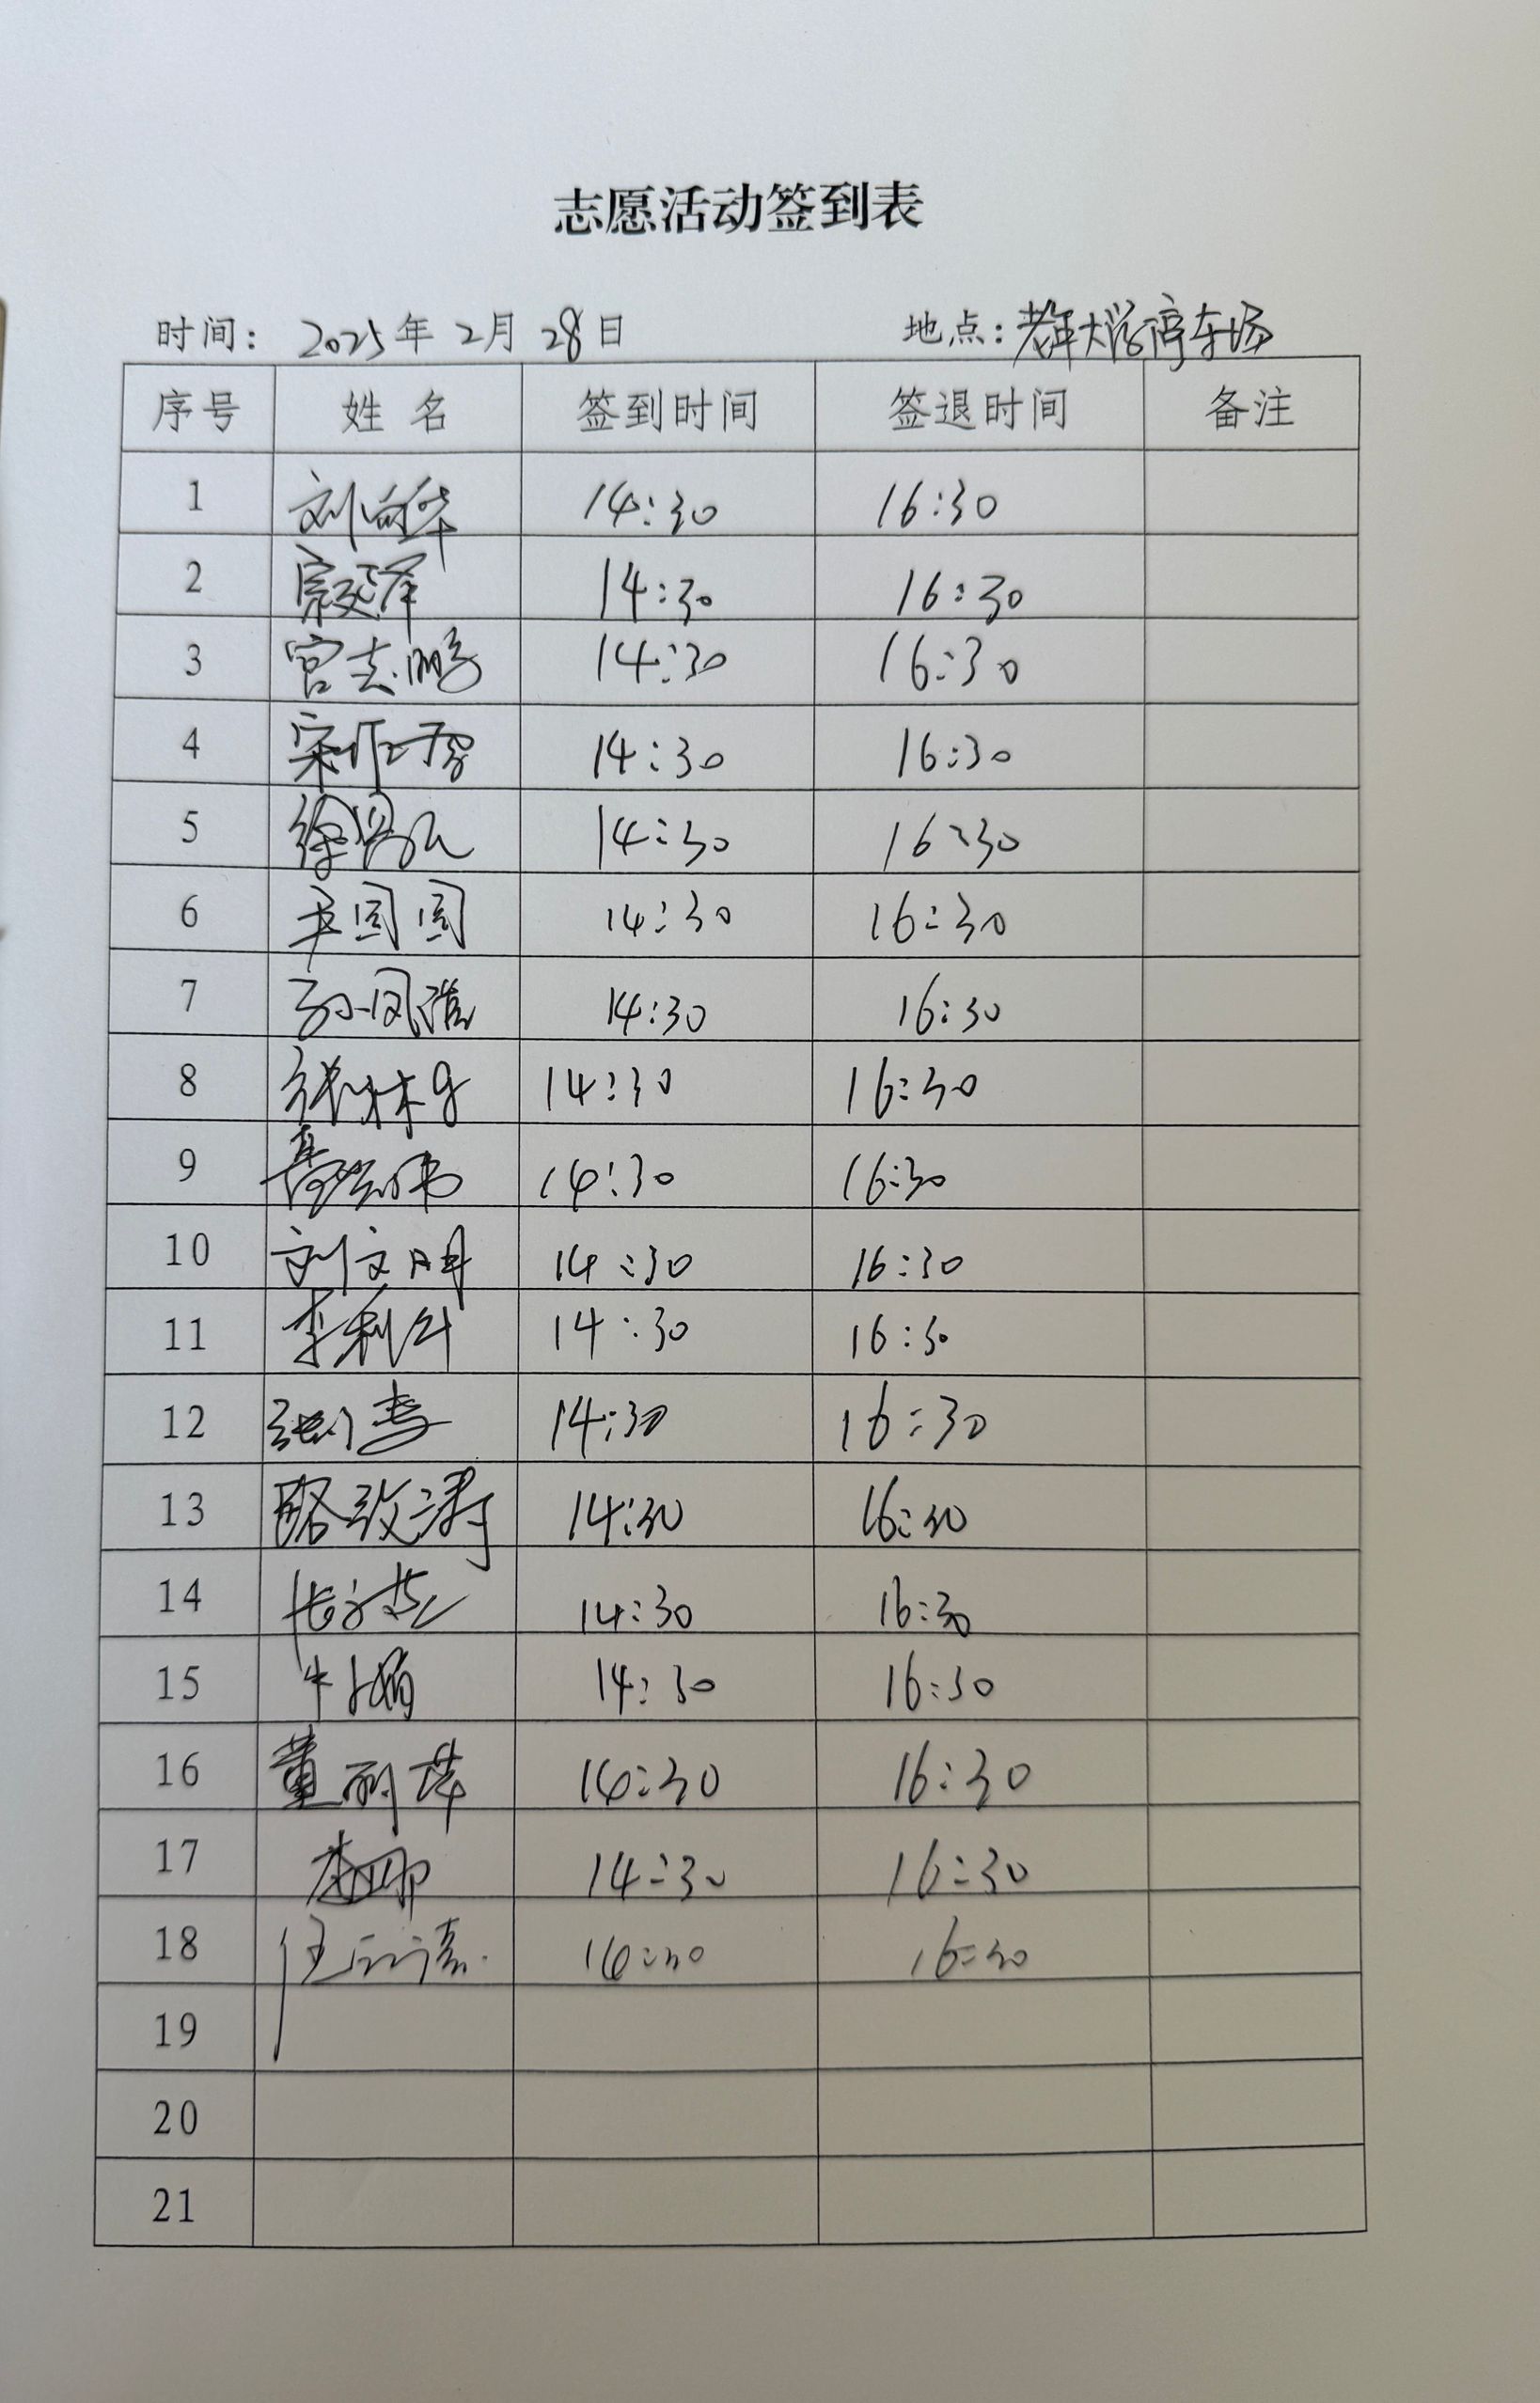 志愿活动签到表
时间: 2025年 2月 28日 地点: 老年大学停车场
序号 姓名 签到时间 签退时间 备注
1 刘向华 14:30 16:30
2 14:30 16:30
3 宫志鹏 14:30 16:30
4 宋 14:30 16:30
5 徐 14:30 16:30
6 圆圆 14:30 16:30
7 孙凤 14:30 16:30
8 张林 14:30 16:30
9 14:30 16:30
10 刘文 14:30 16:30
11 李利 14:30 16:30
12 14:30 16:30
13 骆致 14:30 16:30
14 14:30 16:30
15 牛 14:30 16:30
16 董丽萍 14:30 16:30
17 李娜 14:30 16:30
18 任 14:30 16:30
19
20
21